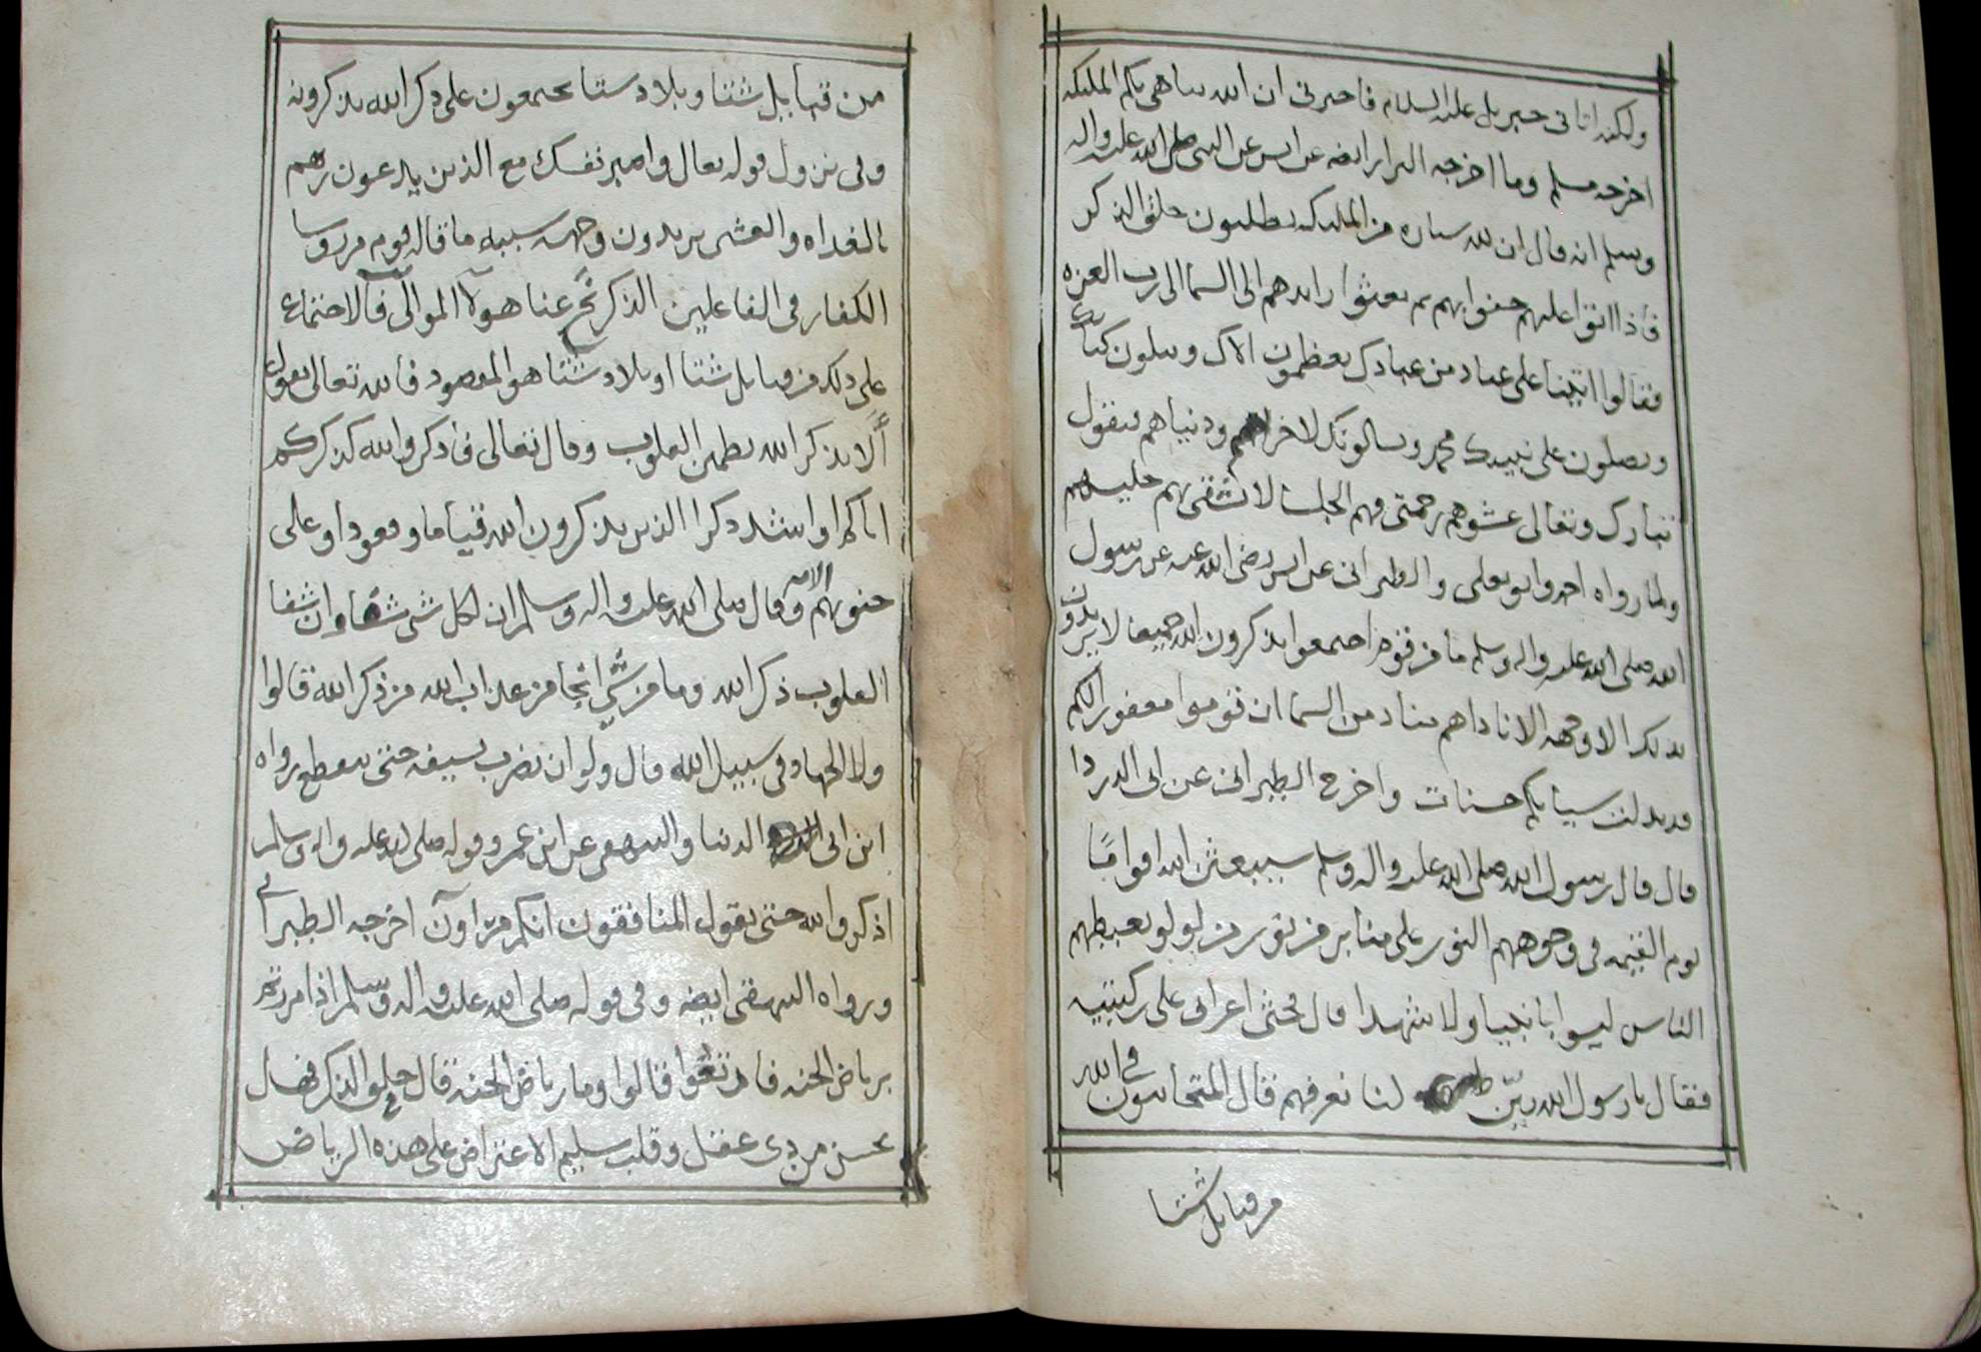 ولكنه اتانى جبريل عليه السلام فاخبرنى ان الله يباهى بكم الملئكه
اخرجه مسلم وما اخرجه البزار ايضه عن انس عن النبى صلى الله عليه واله
وسلم انه قال ان لله سياره من الملئكه يطلبون حلق الذكر
فأذا اتوا عليهم حفوا بهم ثم بعثوا رائدهم الى السما الى رب العزه
فقالوا اتينا على عباد من عبادك يعظمون الاك ويتلون كتابك
ويصلون على نبيك محمد ويسالونك لاخراهم ودنياهم فيقول
تبارك وتعالى غشوهم رحمتى فهم الجلسا لا يشقى بهم جليسهم
ولما رواه احمد وابو يعلى والطبرانى عن انس رضى الله عنه عن رسول
الله صلى الله عليه واله وسلم ما من قوم اجتمعوا يذكرون الله جميعا لا يريدون
بذلك الا وجهه الا ناداهم مناد من السما ان قوموا مغفورا لكم
قد بدلت سياتكم حسنات واخرج الطبرانى عن ابى الدردا
قال قال رسول الله صلى الله عليه واله وسلم سيبعثن الله اقوامًا
يوم القيمه فى وجوههم النور على منابر من لولو يغبطهم
الناس ليسوا بانبيا ولا شهدا قال فجثى اعرابى على ركبتيه
فقال يا رسول الله بيّن لنا نعرفهم فقال المتحابون فى الله
من قبايل شتا
من قبايل شتا وبلاد ستا يجتمعون على ذكر الله يذكرونه
وفى نزول قوله تعال واصبر نفسك مع الذين يدعون ربهم
بالغداه والعشى يريدون وجهه سببه ما قاله قوم من روسا
الكفار فى الفاعلين الذكر نَحِّ عنا هولآ الموالى فآلاجتماع
على ذلك من قبايل شتا او بلاد شتا هو المقصود فالله تعالى يقول
أَلا بذكر الله تطمئن القلوب وقال تعالى فأذكروا الله كذكركم
اباكم او اشد ذكرا الذين يذكرون الله قياما وقعودا وعلى
جنوبهم الايه وقال صلى الله عليه واله وسلم ان لكل شى شفا وان شفا
القلوب ذكر الله وما من شىٍ انجا من عذاب الله من ذكر الله قالوا
ولا الجهاد فى سبيل الله قال ولو ان يضرب بسيفه حتى ينقطع رواه
ابن ابى الدنيا والبيهقى عن ابن عمر وقوله صلى الله عليه واله وسلم
اذكروا الله حتى يقول المنافقون انكم مراوآن اخرجه الطبرانى
ورواه البيهقى ايضه وفى قوله صلى الله عليه واله وسلم اذا مررتم
برياض الجنه فارتعوا قالوا وما رياض الجنه قال حلق الذكر فهل
يحسن من ذى عقل وقلب سليم الاعتراض على هذه الرياض